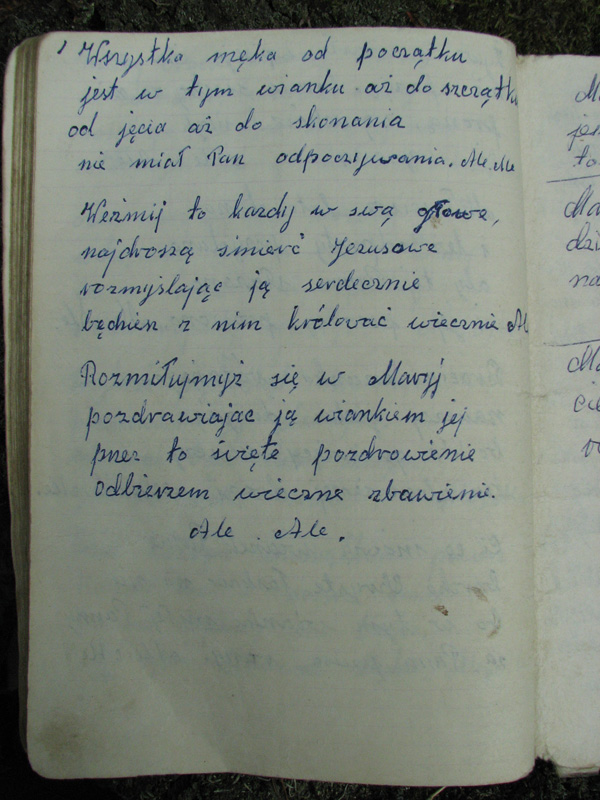 Wszystka męka od początku
jest w tym wianku aż do szczątku
od jęcia aż do skonania
nie miał Pan odpoczywania. Ale. Ale
Weźmij to każdy w swą głowe,
najdroszą śmierć Jezusowe
rozmyślając ją serdecznie
będziesz z nim królować wiecznie Al
Rozmiłujmyż się w Maryj
pozdrawiając ją wiankiem jej
przez to święte pozdrowienie
odbierzem wieczne zbawienie.
Ale. Ale.
Ma
jes
to
Ma
dzi
na
Ma